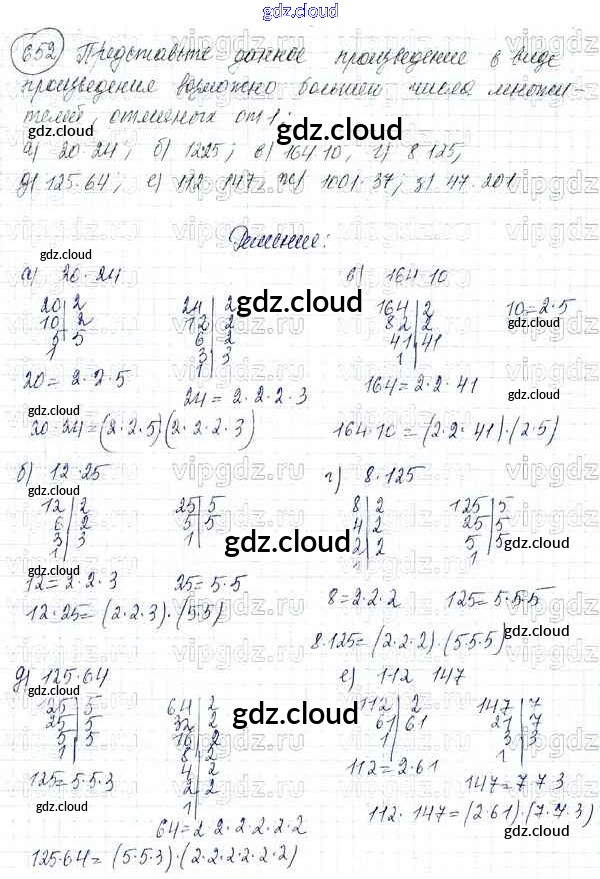 gdz.cloud
652 Представьте данное произведение в виде
произведения возможно большей числа множи-
телей, отличных от 1:
а) 20·24; б) 12 25; в) 164·10; г) 8·125;
д) 125·64; е) 112·147; ж) 1001·37; з) 47·201
Решение:
а) 20·24
20|2
10|2
5|5
1
24|2
12|2
6|2
3|3
1
20=2·2·5
24=2·2·2·3
20·24=(2·2·5)(2·2·2·3)
в) 164·10
164|2
82|2
41|41
1
10=2·5
164=2·2·41
164·10=(2·2·41)·(2·5)
б) 12·25
12|2
6|2
3|3
1
25|5
5|5
1
12=2·2·3
25=5·5
12·25=(2·2·3)·(5·5)
г) 8·125
8|2
4|2
2|2
1
125|5
25|5
5|5
1
8=2·2·2
125=5·5·5
8·125=(2·2·2)·(5·5·5)
д) 125·64
125|5
25|5
5|5
1
64|2
32|2
16|2
8|2
4|2
2|2
1
125=5·5·3
64=2·2·2·2·2·2
125·64=(5·5·3)·(2·2·2·2·2·2)
е) 112 147
112|2
61|61
1
147|7
21|7
3|3
1
112=2·61
147=7·7·3
112·147=(2·61)·(7·7·3)